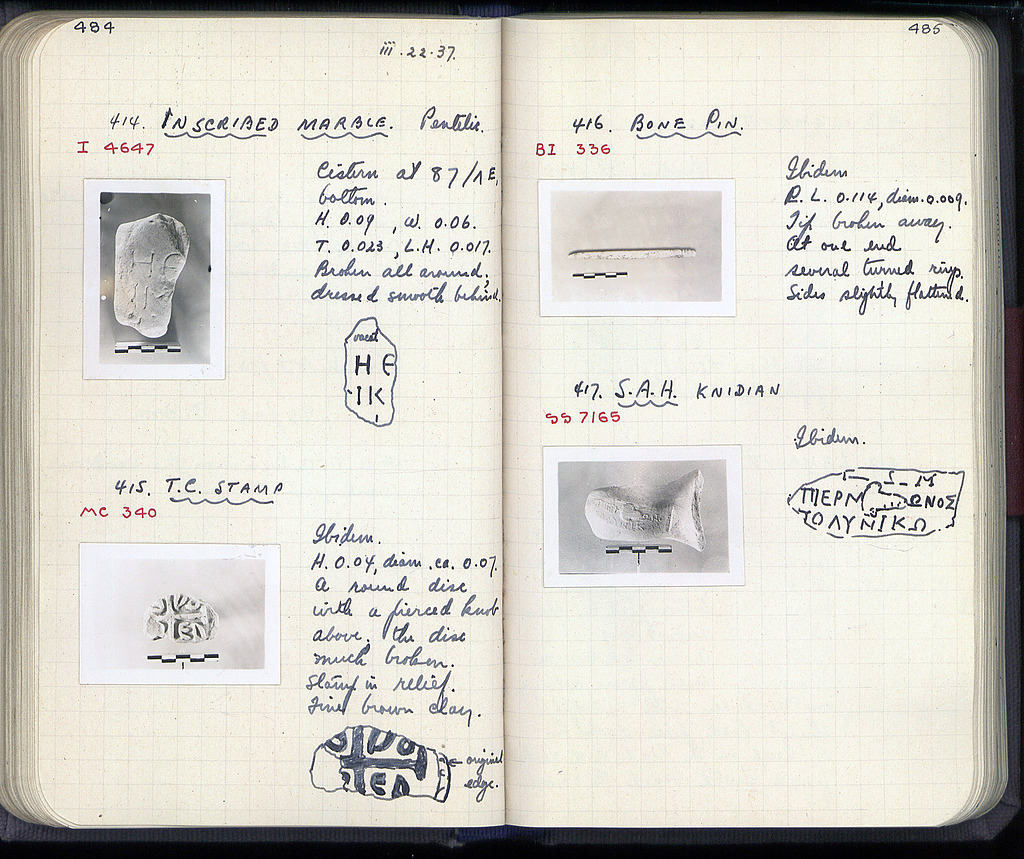 484
iii.22.37.
414. INSCRIBED MARBLE. Pentelic.
I 4647
Cistern at 87/ΛE,
bottom.
H. 0.09, W. 0.06.
T. 0.023, L.H. 0.017.
Broken all around;
dressed smooth behind.
vacat
H E
IK
415. T.C. STAMP
MC 340
Ibidem.
H. 0.04, diam. ca. 0.07.
A round disc
with a pierced knob
above, the disc
much broken.
Stamp in relief.
Fine brown clay.
← original
edge.
485
416. BONE PIN.
BI 336
Ibidem
P. L. 0.114, diam. 0.009.
Tip broken away.
At one end
several turned rings.
Sides slightly flattened.
417. S.A.H. KNIDIAN
SS 7165
Ibidem.
ΠΕΡΜ ΩΝΟΣ